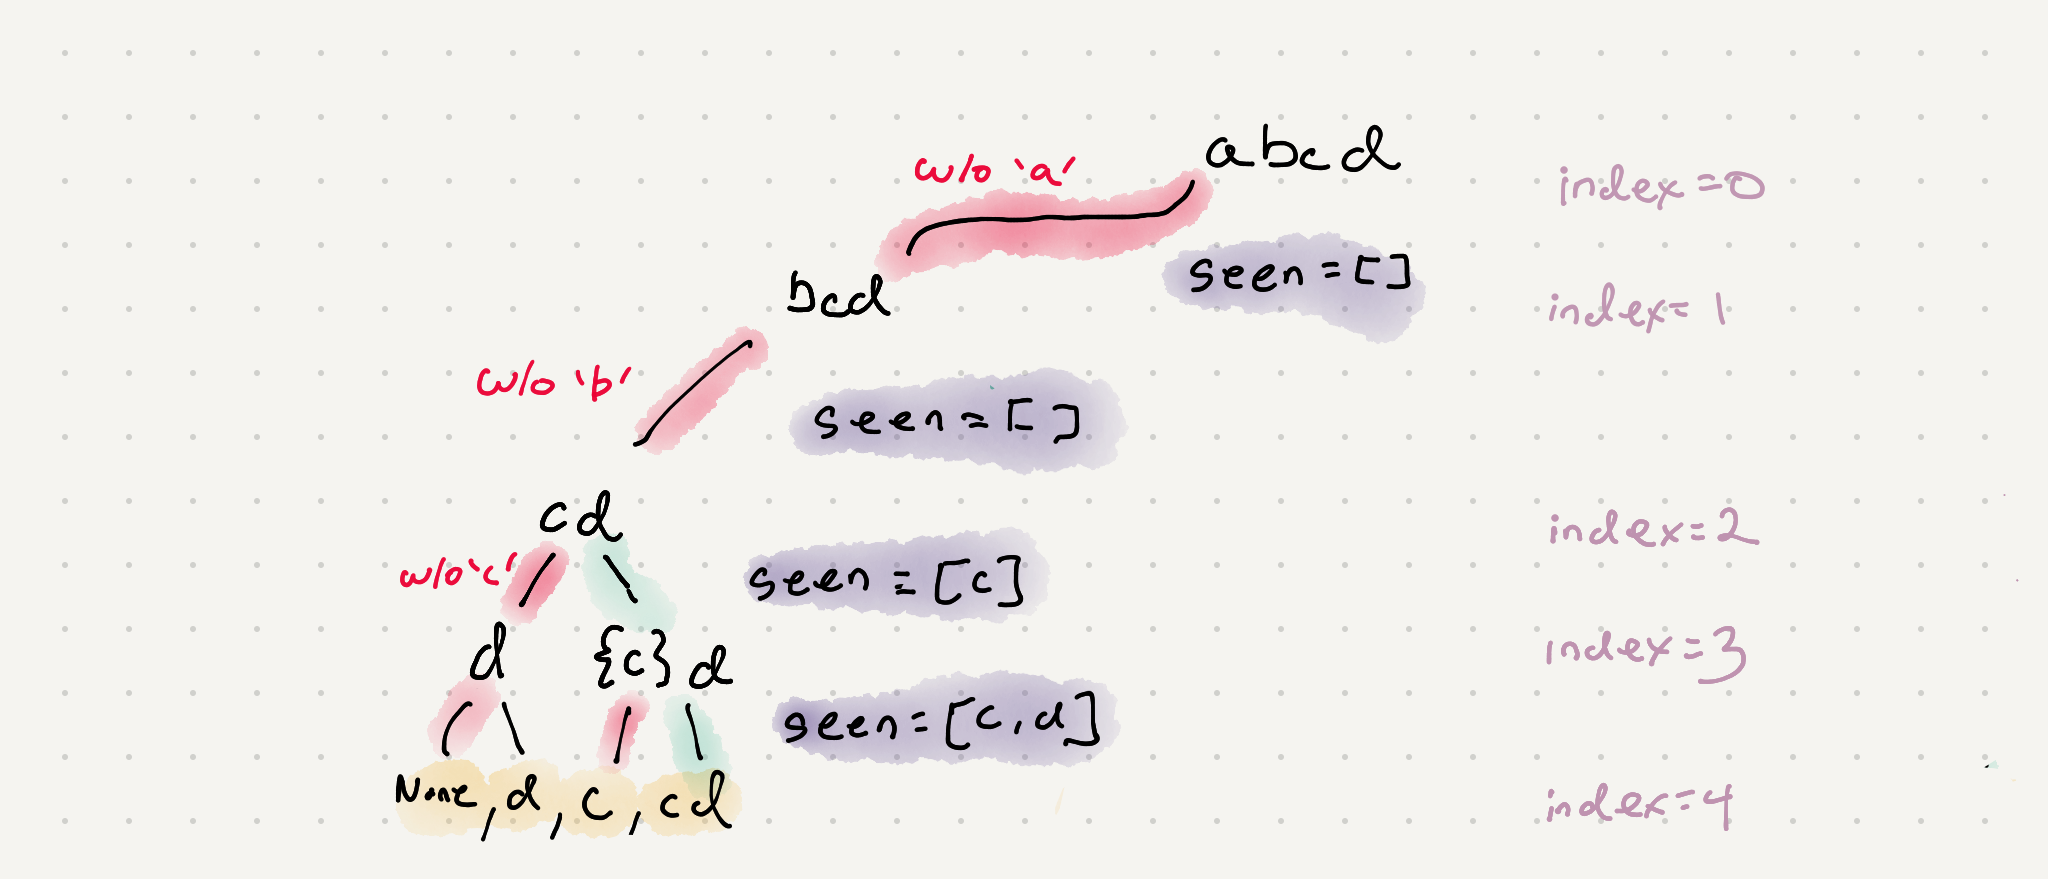 abcd
w/o 'a'
index=0
seen=[]
bcd
index=1
w/o 'b'
seen=[]
cd
index=2
w/o 'c'
seen=[c]
d
{c} d
index=3
seen=[c,d]
None, d, c, cd
index=4